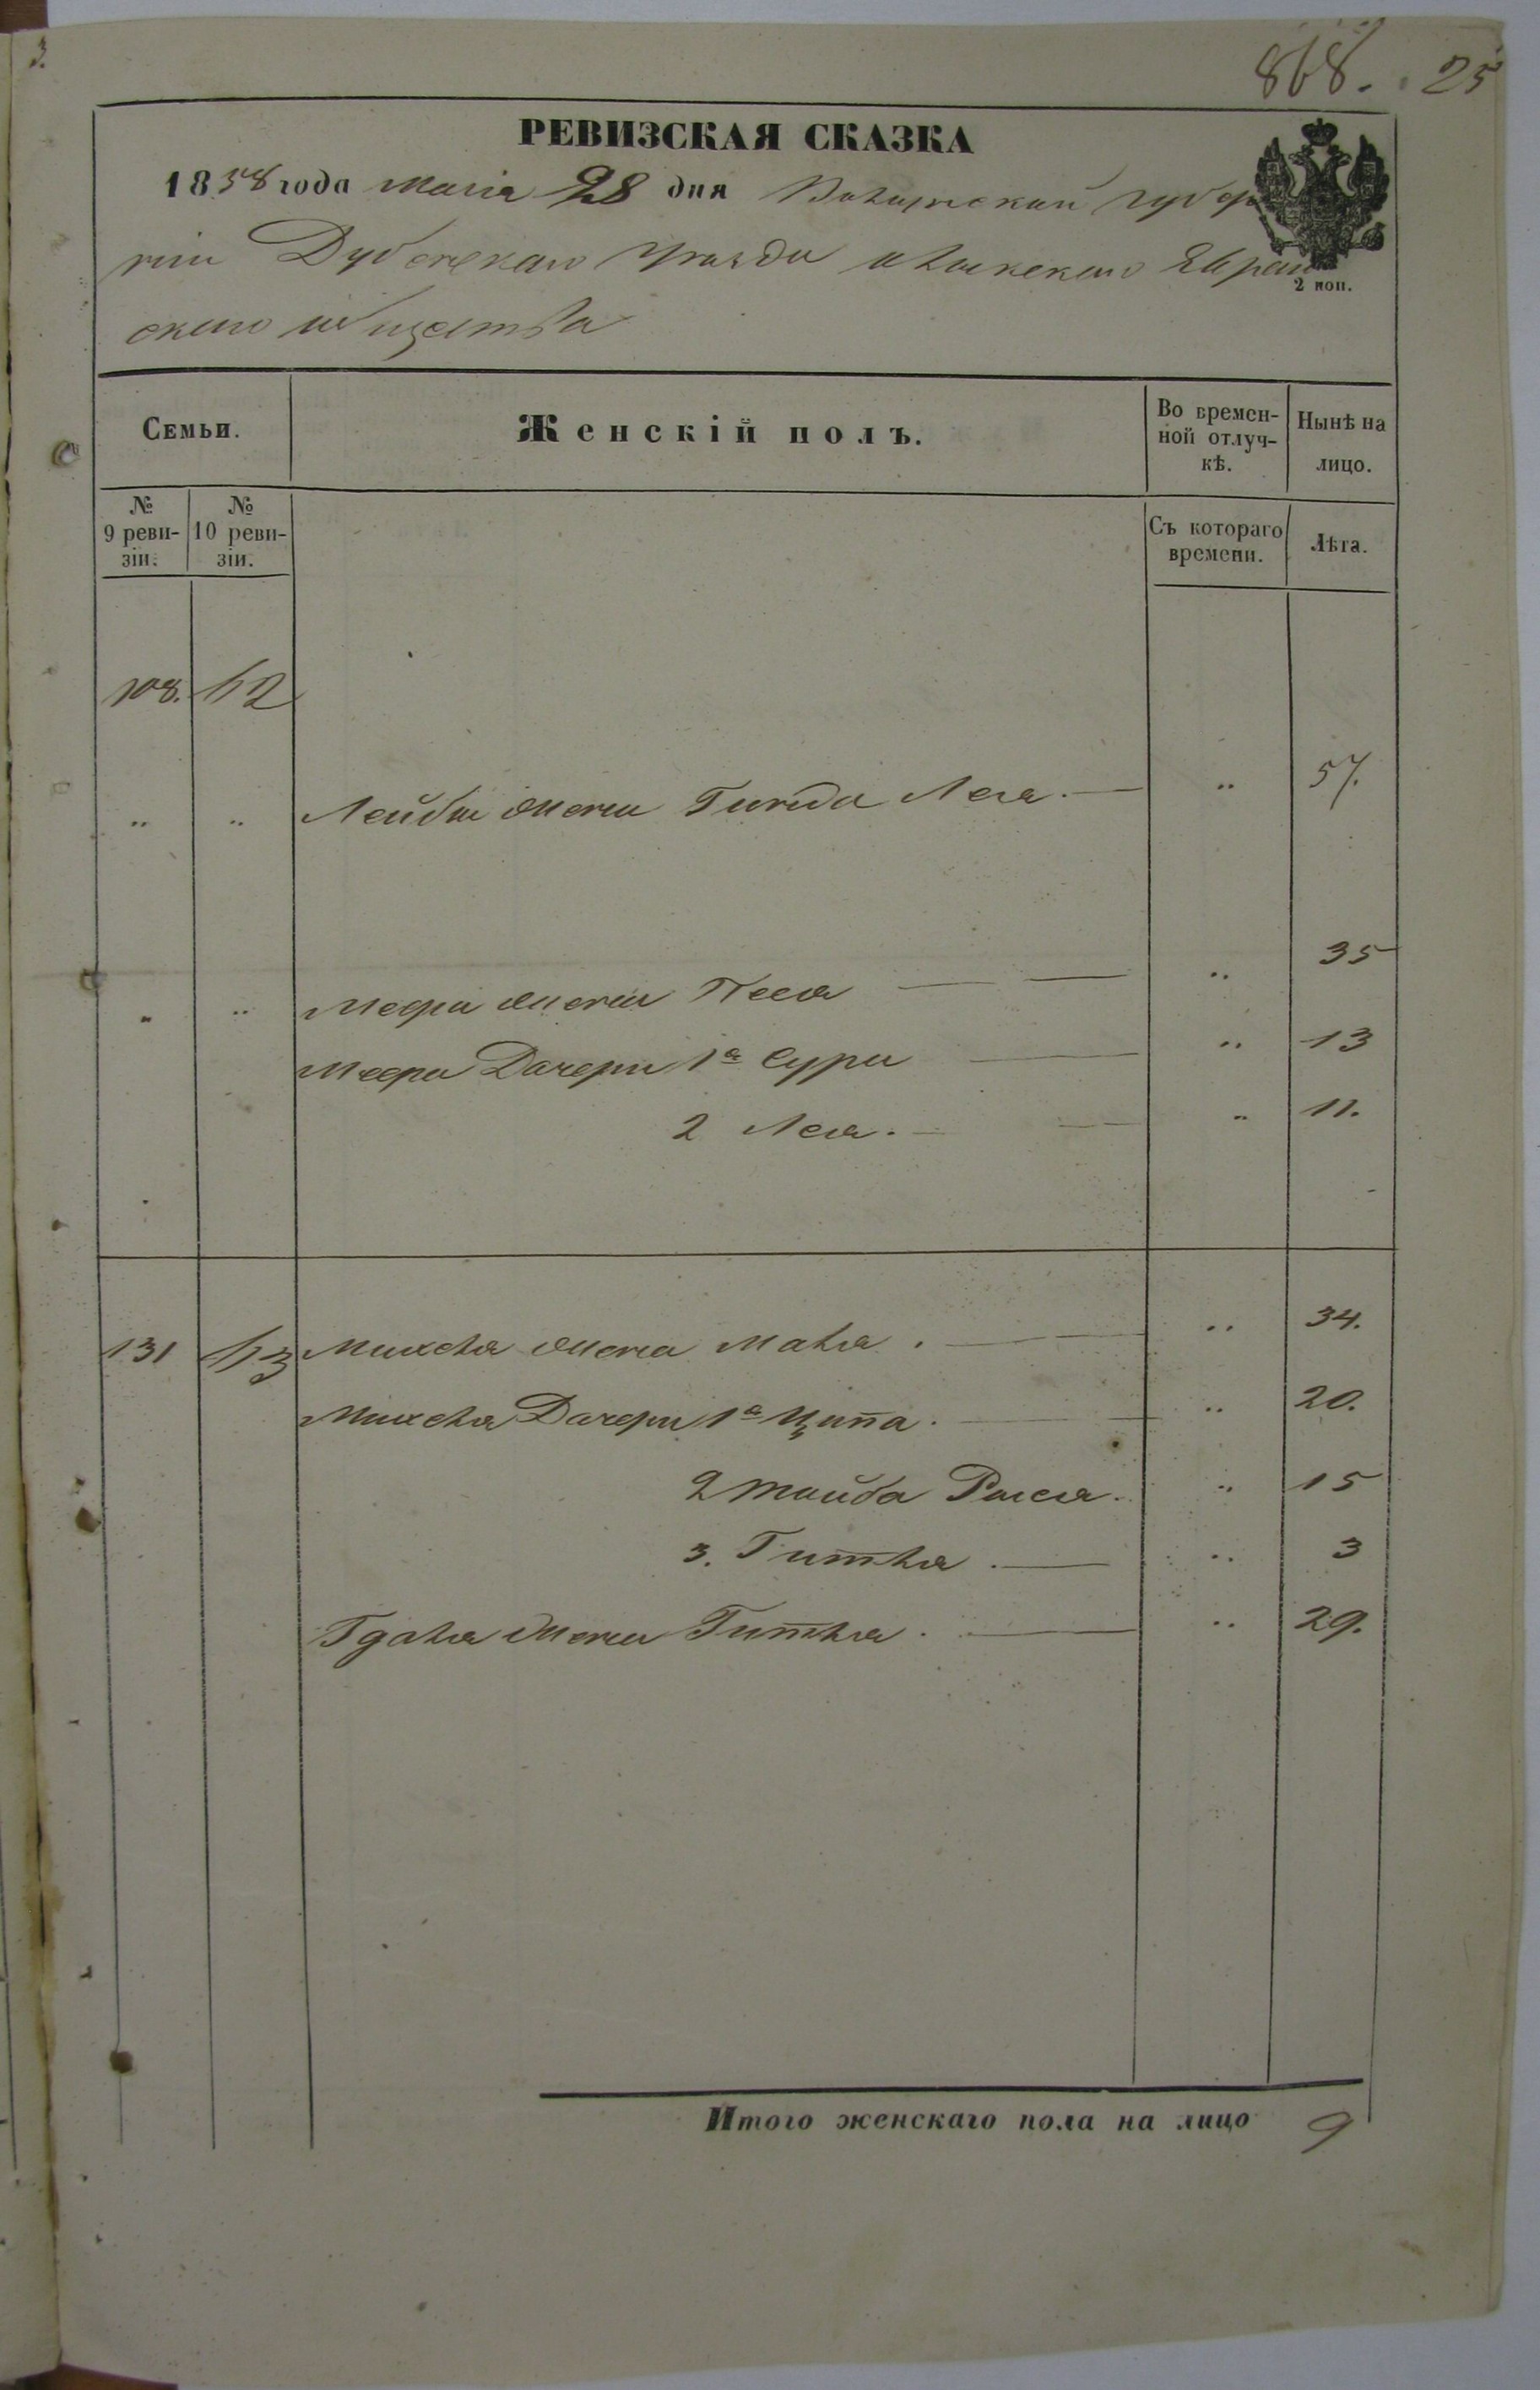 3.
868. 25
РЕВИЗСКАЯ СКАЗКА
1858 года Маія 28 дня Волынской губер
ніи Дубенскаго Уѣзда Олыкскаго Еврей
2 коп.
скаго общества
Семьи. Женскій полъ. Во времен-ной отлуч-кѣ. Нынѣ на лицо.
№ 9 реви-зіи. № 10 реви-зіи. Съ котораго времени. Лѣта.
108. 62
" " Лейбы жена Гинда Лея. — " 57.
" " Меера жена Песя — — " 35
Меера Дочери 1я Сура — " 13
2 Лея. — — " 11.
131 63 Михеля жена Маля. — " 34.
Михеля Дочери 1я Ципа. — " 20.
2 Тайба Рыся. " 15
3. Гитля. — " 3
Гдаля жена Гитля. — " 29.
Итого женскаго пола на лицо 9